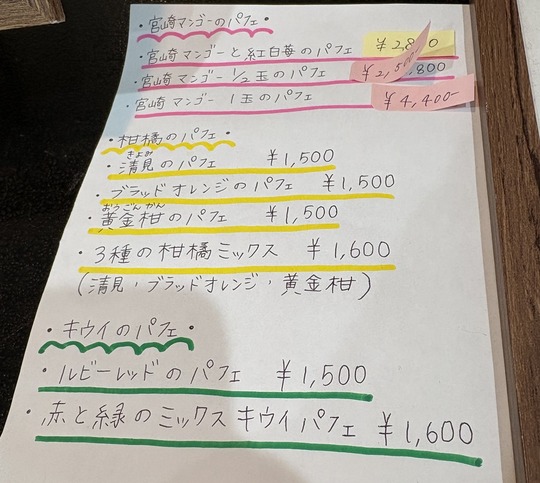 ・宮崎マンゴーのパフェ・
・宮崎マンゴーと紅白苺のパフェ ¥2,8
・宮崎マンゴー 1/2玉のパフェ ¥2,5 800
・宮崎マンゴー 1玉のパフェ ¥4,400-
・柑橘のパフェ・
きよみ
・清見のパフェ ¥1,500
・ブラッドオレンジのパフェ ¥1,500
おうごんかん
・黄金柑のパフェ ¥1,500
・3種の柑橘ミックス ¥1,600
(清見・ブラッドオレンジ・黄金柑)
・キウイのパフェ・
・ルビーレッドのパフェ ¥1,500
・赤と緑のミックスキウイパフェ ¥1,600